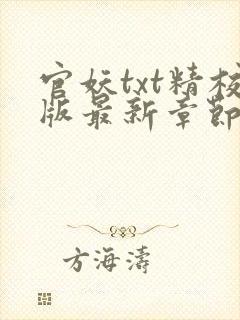 官妖txt精校
版最新章節
方海濤